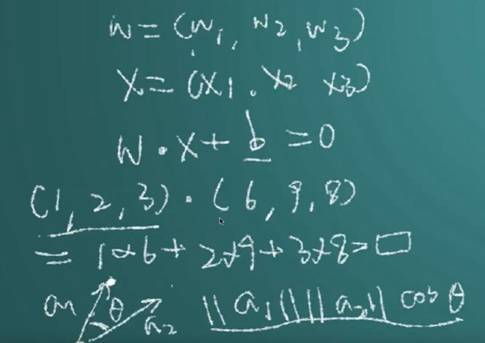 w = (w₁, w₂, w₃)
x = (x₁, x₂ x₃)
w · x + b = 0
(1, 2, 3) · (6, 9, 8)
= 1×6 + 2×9 + 3×8 = □
a₁ θ a₂ ||a₁|| ||a₂|| cos θ